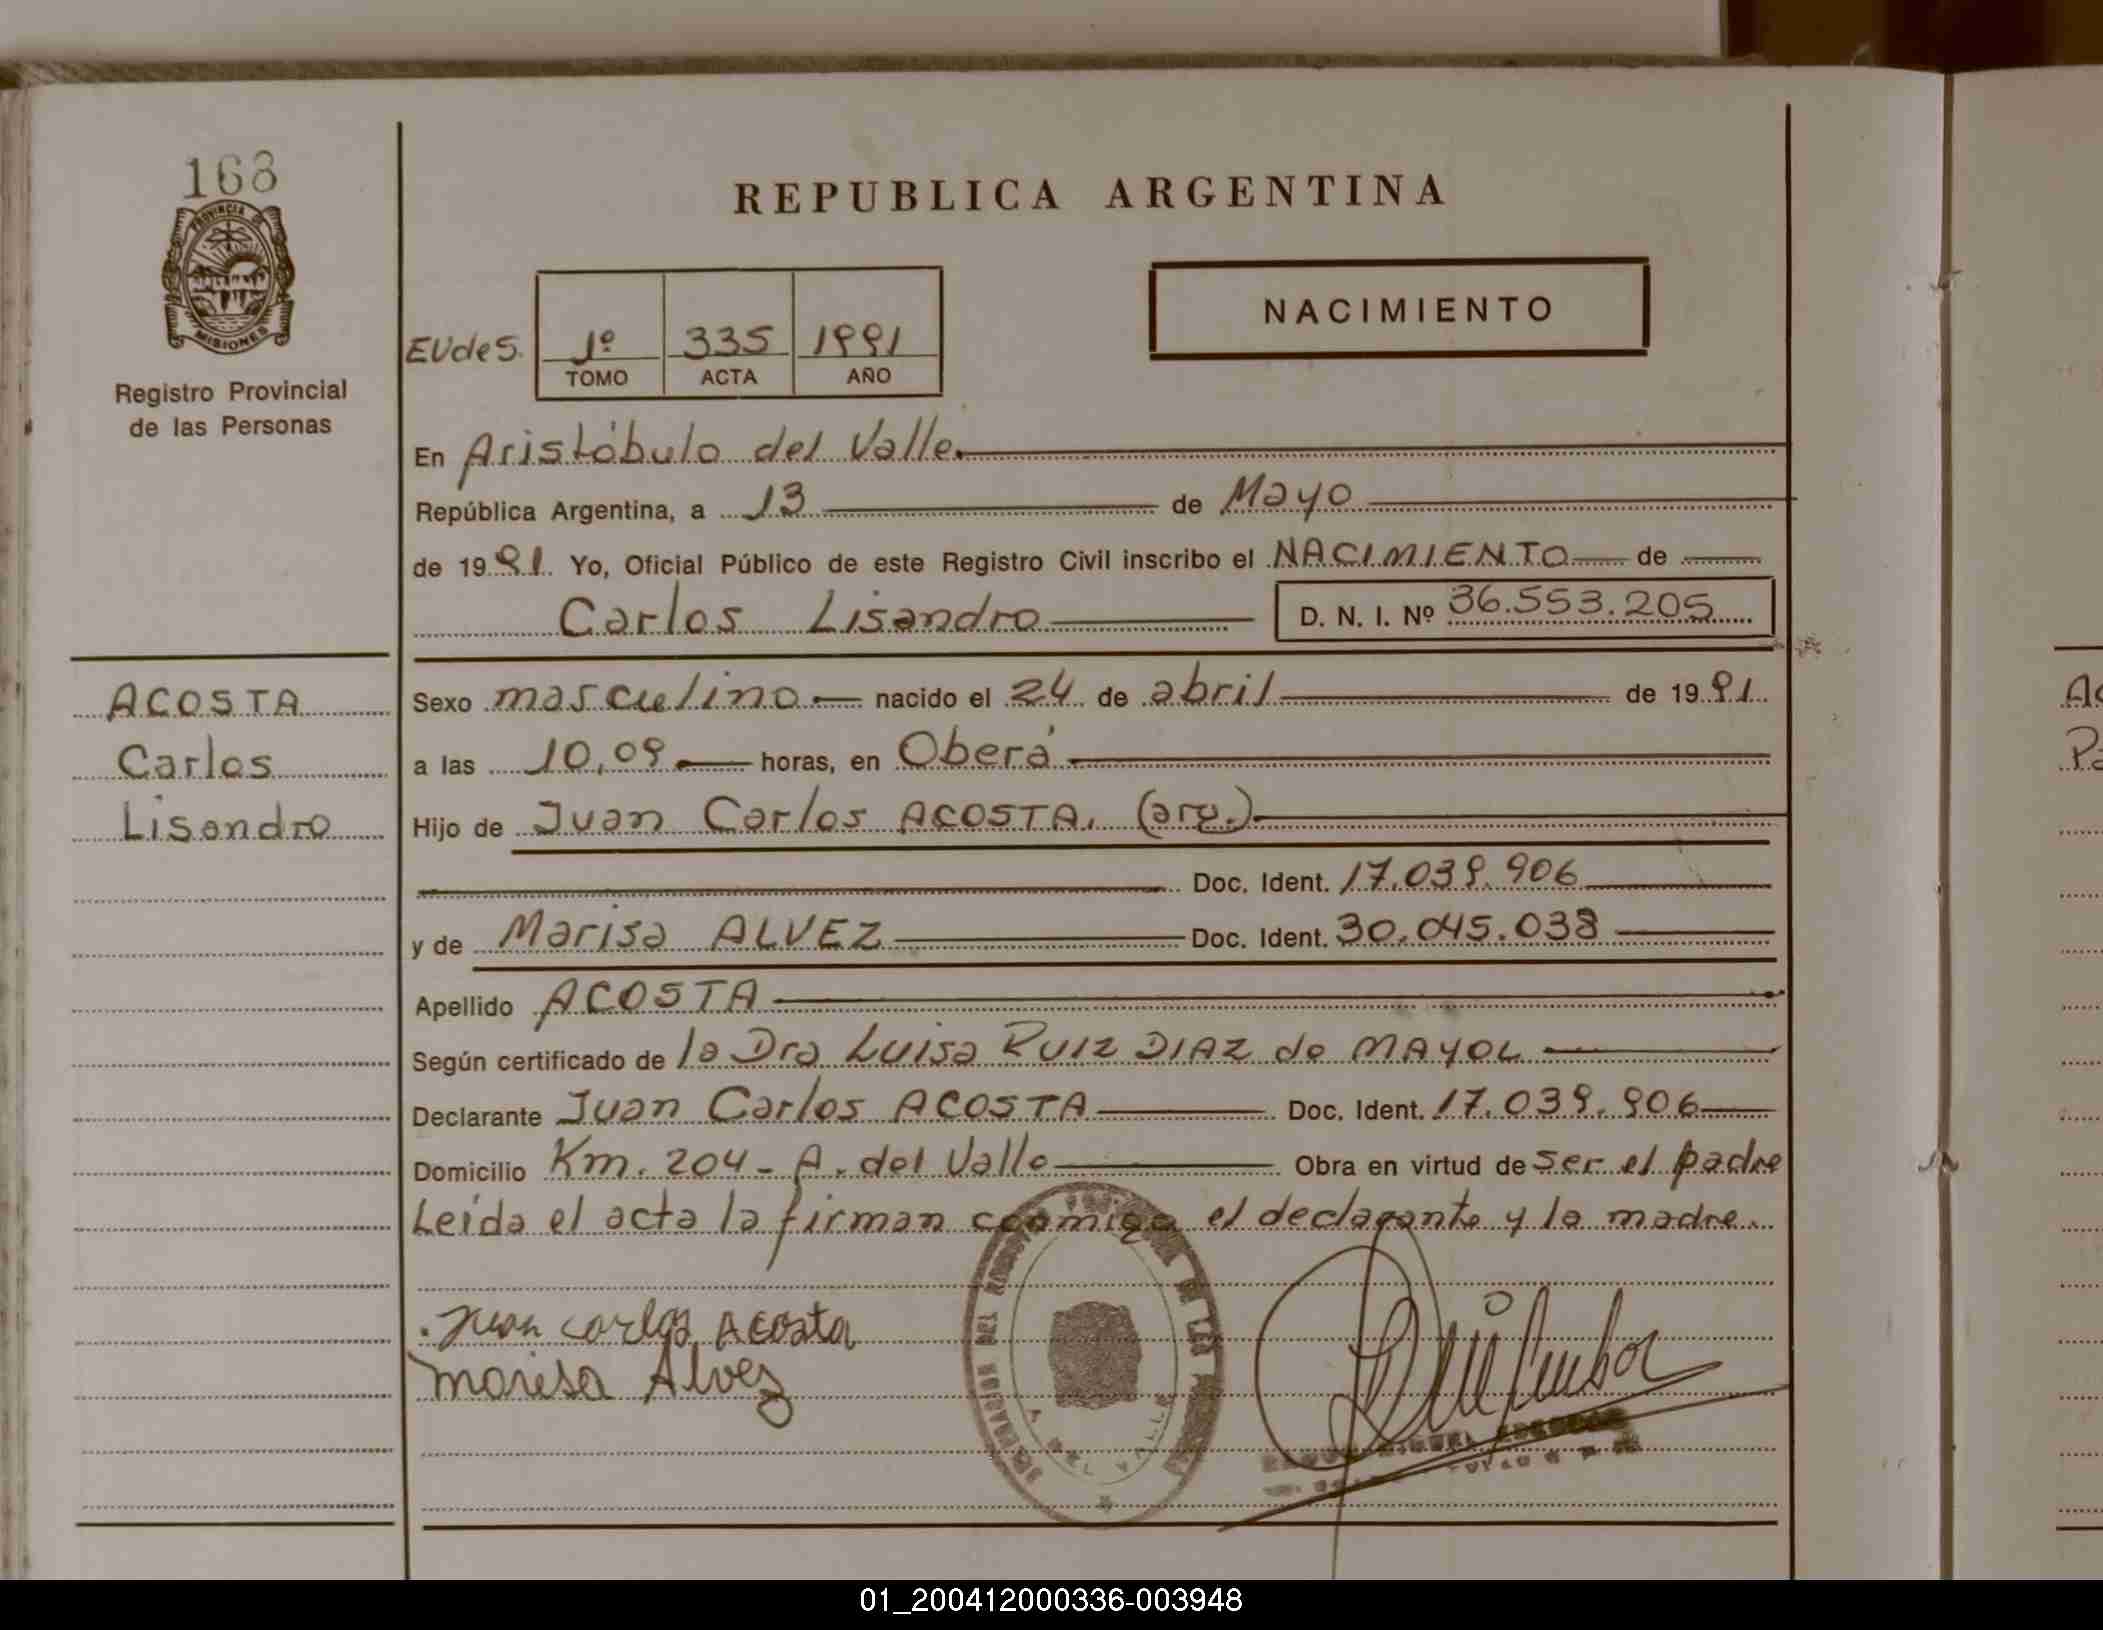 168
PROVINCIA DE
MISIONES
Registro Provincial
de las Personas
REPUBLICA ARGENTINA
NACIMIENTO
EUdeS. 1º 335 1991
TOMO ACTA AÑO
En Aristóbulo del Valle.
República Argentina, a 13 de Mayo
de 1991. Yo, Oficial Público de este Registro Civil inscribo el NACIMIENTO de
Carlos Lisandro D. N. I. Nº 36.553.205
ACOSTA
Carlos
Lisandro
Sexo masculino nacido el 24 de abril de 1991
a las 10,09 horas, en Oberá
Hijo de Juan Carlos ACOSTA. (arg.)
Doc. Ident. 17.039.906
y de Marisa ALVEZ Doc. Ident. 30.045.038
Apellido ACOSTA
Según certificado de la Dra Luisa RUIZ DIAZ de MAYOL
Declarante Juan Carlos ACOSTA Doc. Ident. 17.039.906
Domicilio Km. 204 - A. del Valle Obra en virtud de ser el padre
Leída el acta la firman conmigo el declarante y la madre.
Juan Carlos Acosta
Marisa Alvez
A. DEL VALLE
Ac
Pa
01_200412000336-003948